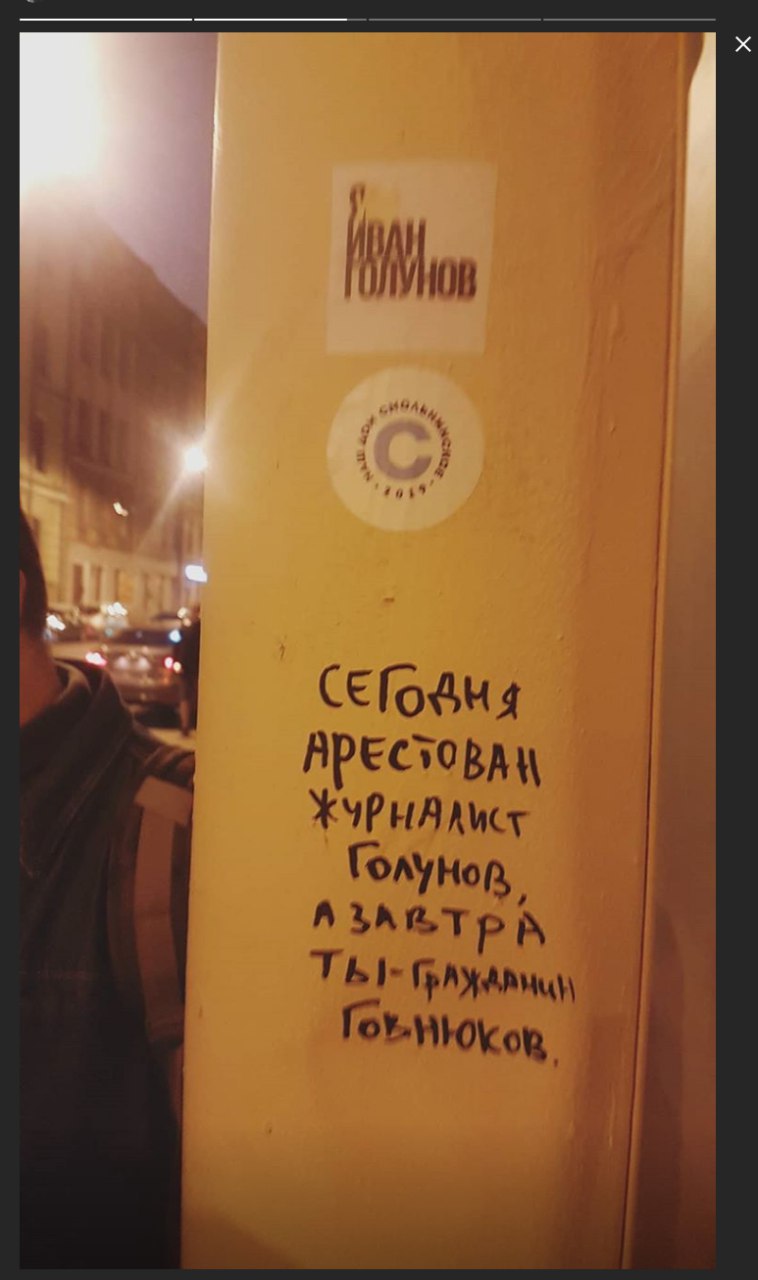 Я
ИВАН
ГОЛУНОВ
НАШ ДОМ СМОЛЬНИНСКОЕ
2019
С
СЕГОДНЯ
АРЕСТОВАН
ЖУРНАЛИСТ
ГОЛУНОВ,
А ЗАВТРА
ТЫ-ГРАЖДАНИН
ГОВНЮКОВ.